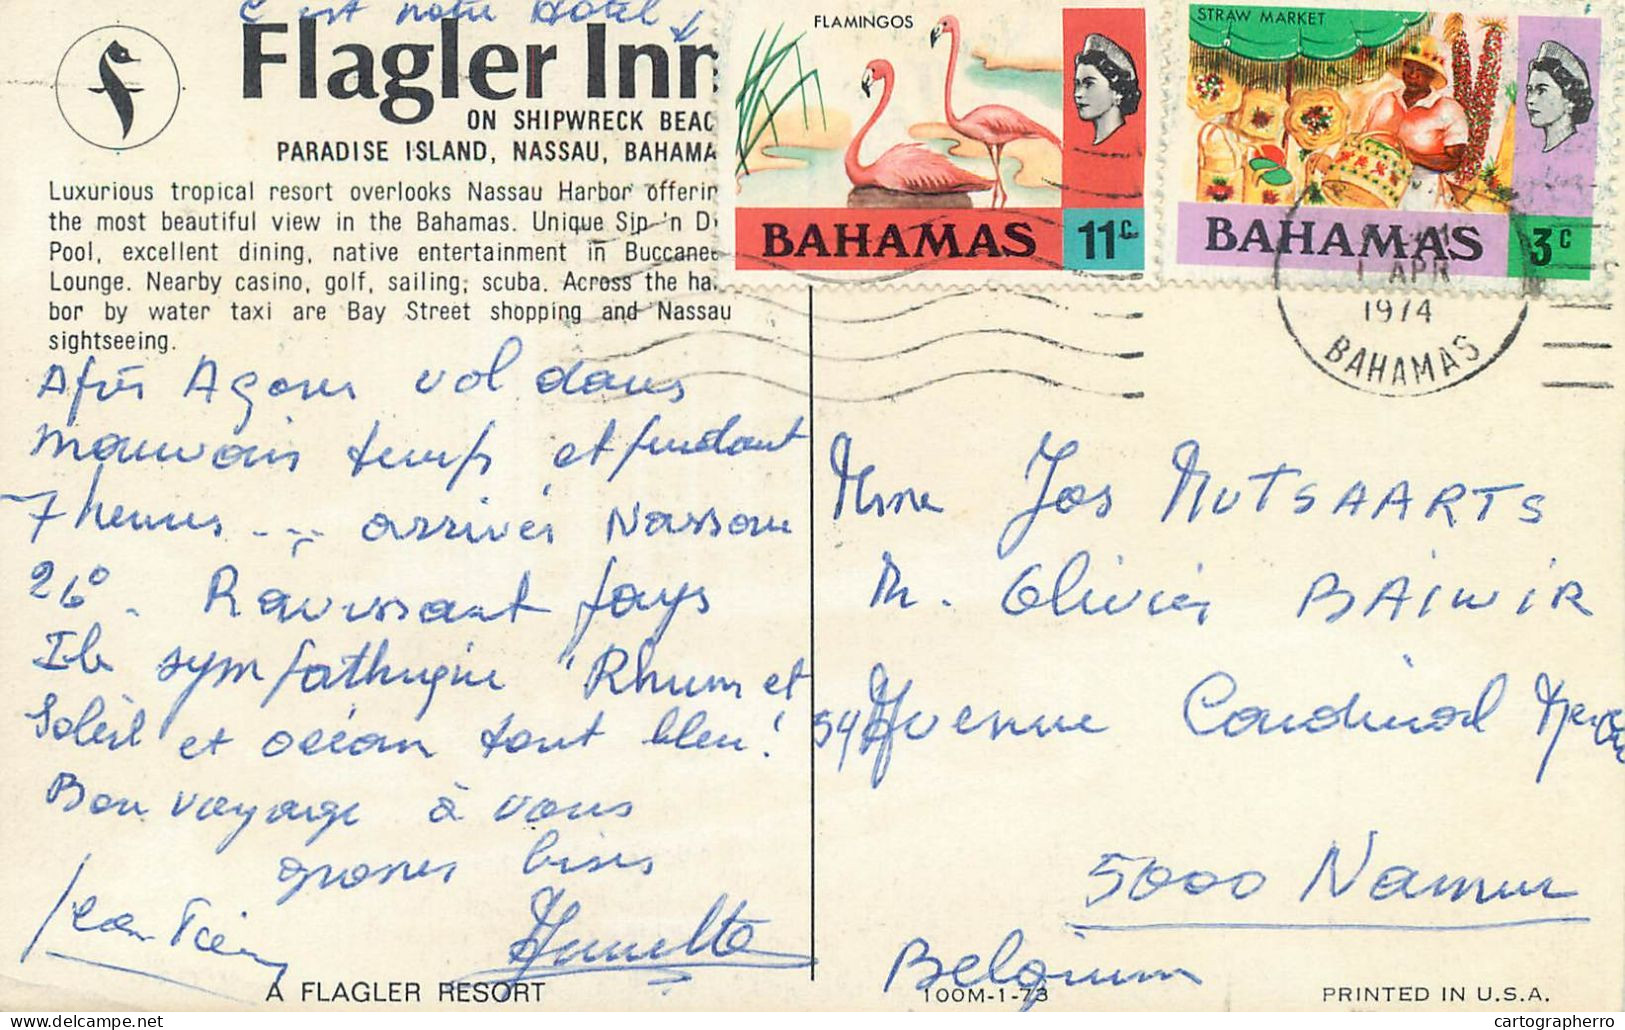 C'est notre Hôtel ↓
Flagler Inn
ON SHIPWRECK BEAC
PARADISE ISLAND, NASSAU, BAHAMA
Luxurious tropical resort overlooks Nassau Harbor offerin
the most beautiful view in the Bahamas. Unique Sip 'n Di
Pool, excellent dining, native entertainment in Buccanee
Lounge. Nearby casino, golf, sailing, scuba. Across the har
bor by water taxi are Bay Street shopping and Nassau
sightseeing.
FLAMINGOS
BAHAMAS 11c
STRAW MARKET
BAHAMAS 3c
1 APR
1974
BAHAMAS
Après vol dans
mauvais temps et pendant
7 heures ... arrivés Nassau
26°. Ravissant pays
Ile sympathique "Rhum et
Soleil et océan tout bleu!
Bon voyage à vous
grosses bises
Jean Pierre
Annette
Mme Jos MUTSAARTS
M. Olivier BAIWIR
54 Avenue Cardinal
5000 Namur
Belgium
A FLAGLER RESORT
100M-1-73
PRINTED IN U.S.A.
cartographerro